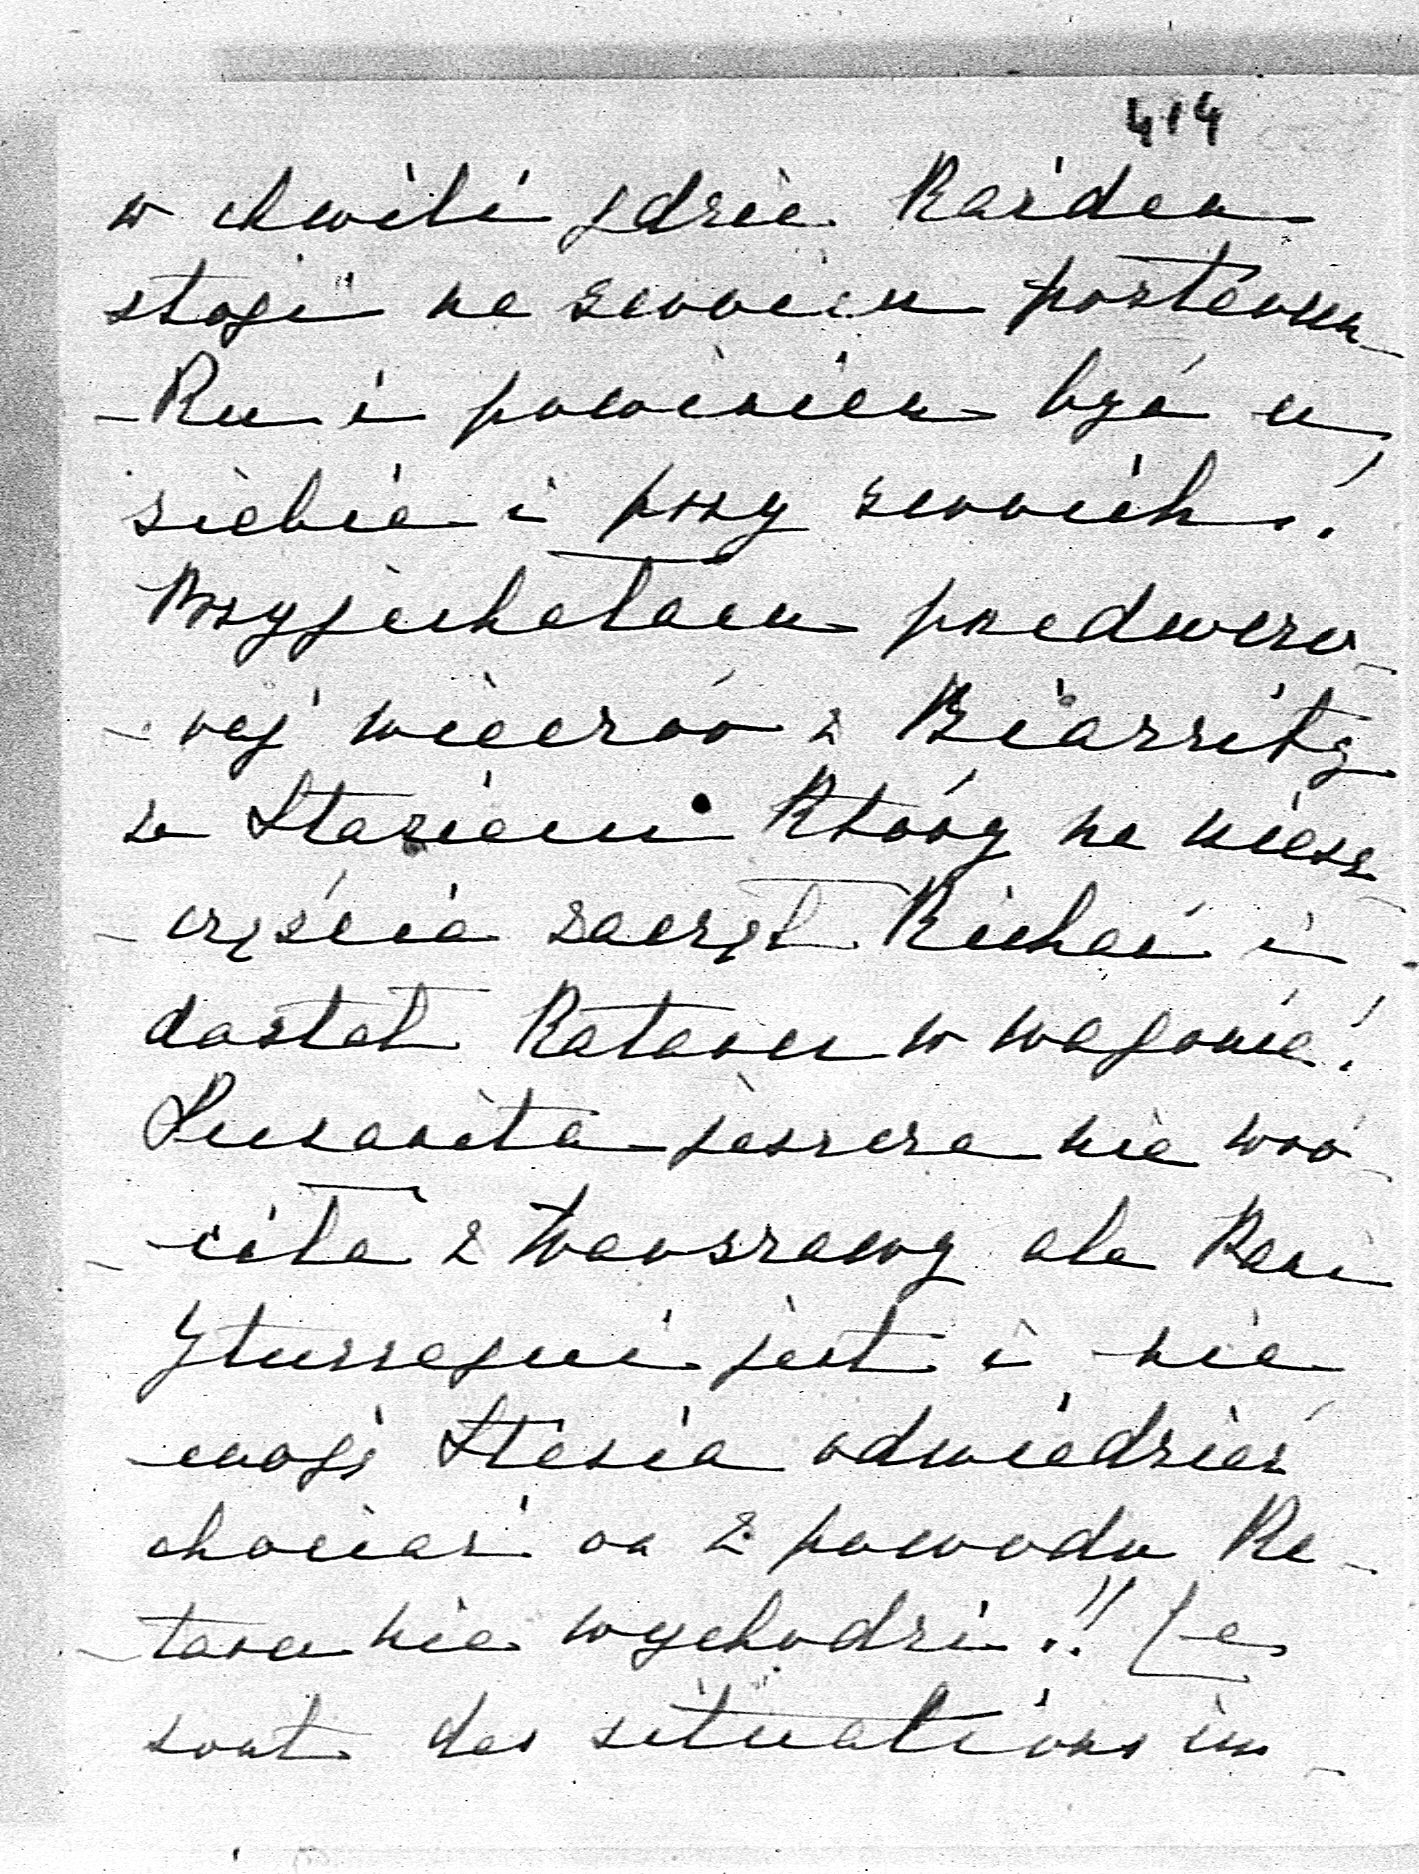 414
w chwili gdzie Każden
stoji na swoiem posterun
-Ku i powinien być u
siebie i przy swoich!
Przyjechałam przedwczo
-raj wieczór z Biarritz
ze Stasiem Który na niesz
-częście zaczął Kichać i
dostał Kataru w wagonie!
Susanita jeszcze nie wró
-ciła z Warszawy ale Pani
Yturregui jest i nie
mogę Stasia odwiedzieć
chociaż on z powodu Ka-
-taru nie wychodzi!! Ce
sont des situations im-